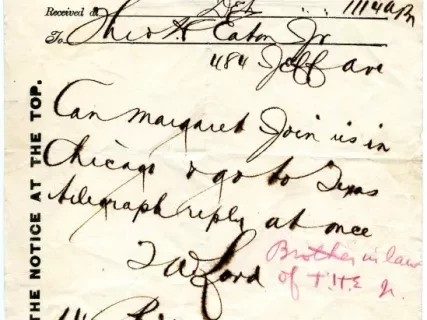 Received at Det 1114am
To Theo H Eaton Jr
484 Jeff ave
Can margaret Join us in
Chicago & go to Texas
telegraph reply at once
Ford
Brother in law
of T.H.E Jr.
THE NOTICE AT THE TOP.